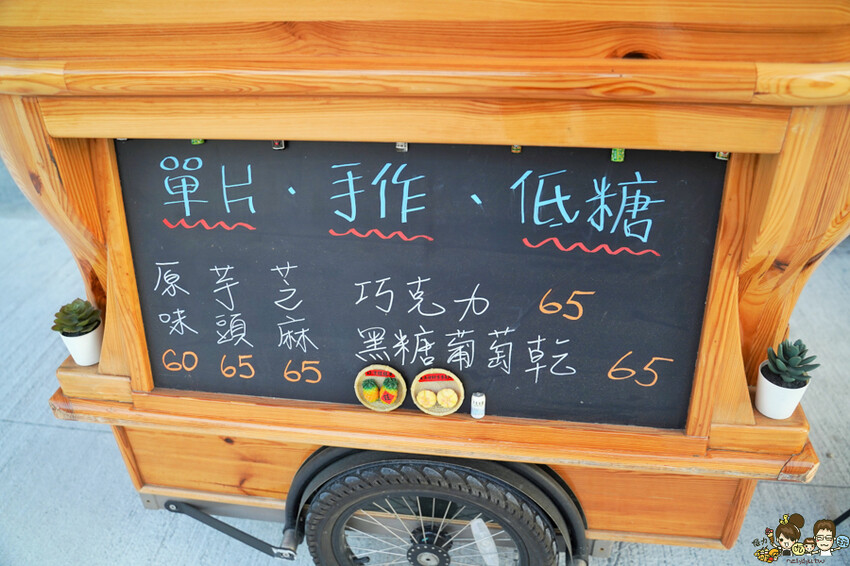 單片、手作、低糖
原味 60
芋頭 65
芝麻 65
巧克力 65
黑糖葡萄乾 65